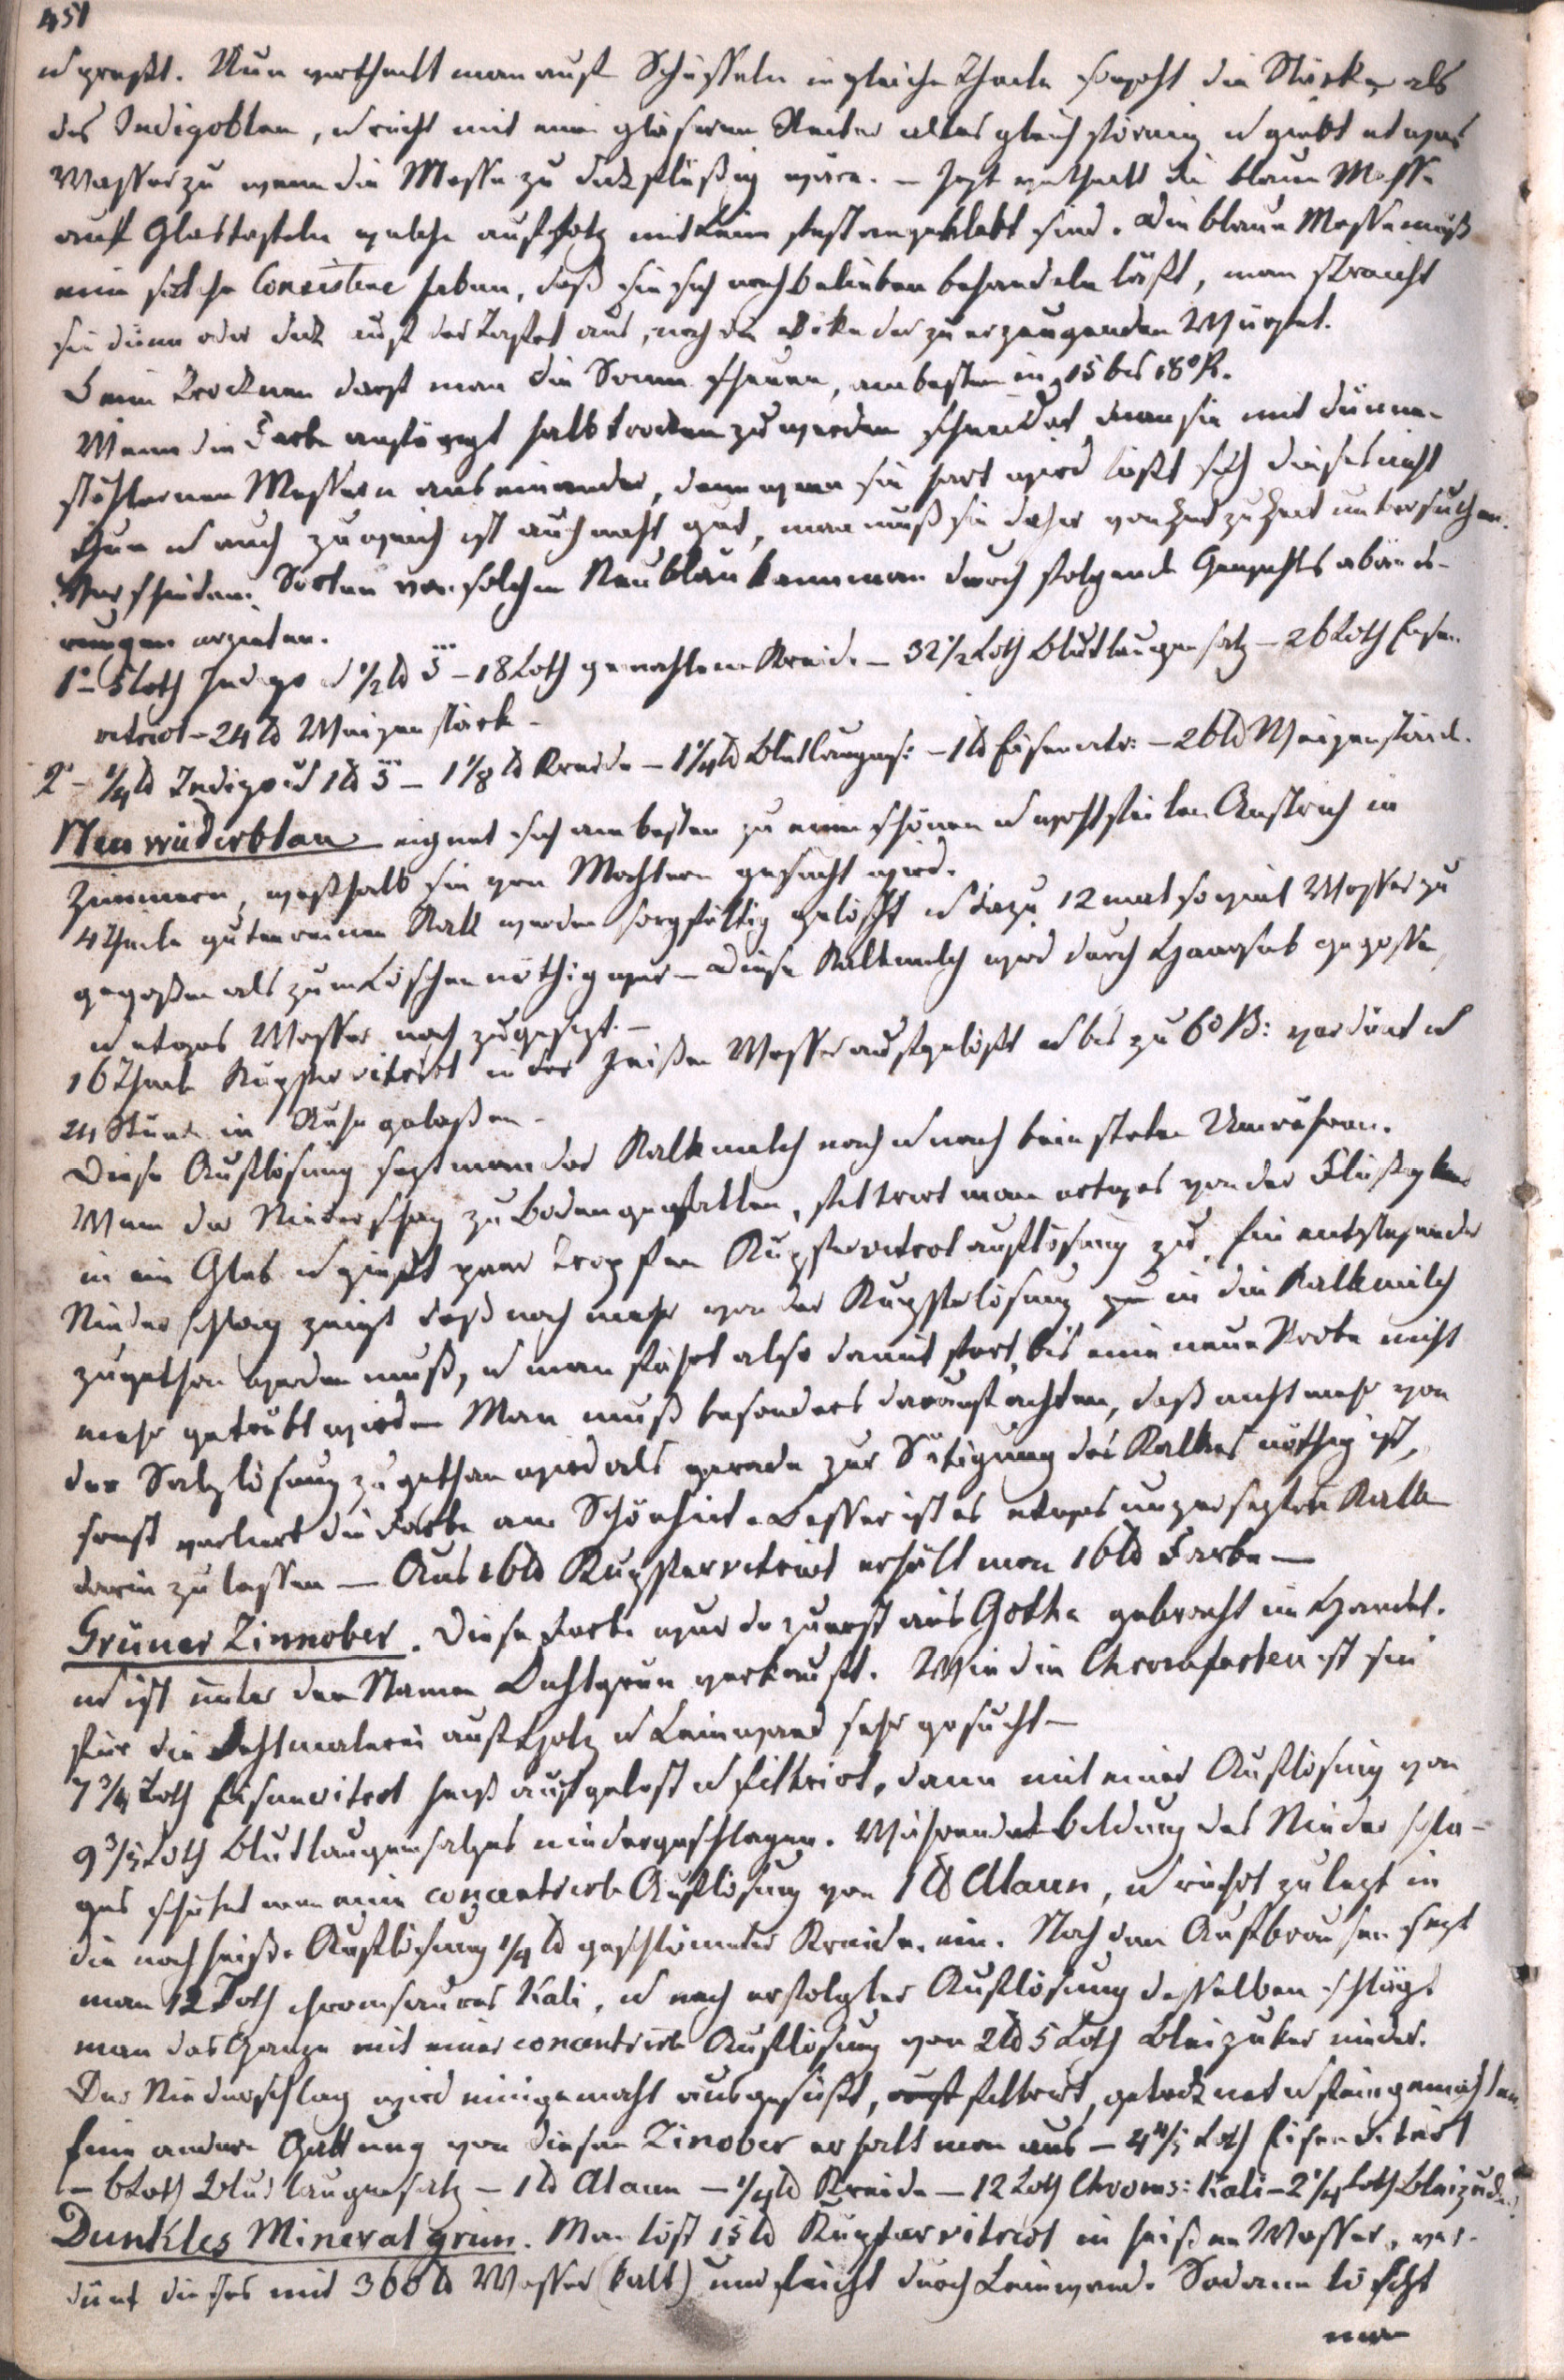 451
u preßt. Nun vertheilt man auf Schüsseln in gleiche Theile sowohl die Stärke als
des Indigoblau, u rührt mit einer gläsernen alles gleichförmig u giebt etwas
Wasser zu wenn die Masse zu dickflüßig wäre. – Jezt vertheilt die blaue Masse
auf Glastafeln welche auf Holz mit Leim fest angeklebt sind. Die blaue Masse muß
eine solche Consistenc haben, daß sie sich nach belieben behandeln läßt, man streicht
sie dünn oder dick auf der Tafel aus, nach der Dike der zu erzeugenden Würfel.
Beim Trocknen darf man die Sonne scheuen, am besten in 15 bis 18° R.
Wenn die Farbe anfängt halbtrocken zu werden schneidet man sie mit dünnen
stählernen Messern auseinander, denn wenn sie hart wird läßt sich dieses nicht
thun u auch zu weich ist auch nicht gut, man muß sie daher von Zeit zu Zeit untersuchen.
Verschiedene Sorten von solchem Neublau kann man durch folgende Gewichtsabände-
rungen erzielen.
1° – 5 Loth Indigo u ½ ℔ – 18 Loth gemahlene Kreide – 32½ Loth Blutlaugensalz – 26 Loth Eisen
vitriol – 24 ℔ Weizenstärk –
2° – ¼ ℔ Indigo u 1 ℔ – 1⅛ ℔ Kreide – 1¼ ℔ Blutlaugens: – 1 ℔ Eisenvitr: – 26 ℔ Weizenstärk.
Neuwiederblau eignet sich am besten zu einem schönen u wohlfeilen Anstrich in
Zimmern, weßhalb sie von Mahlern gesucht wird.
4 Theile guten reinen Kalk werden sorgfältig gelöscht u dazu 12 mal so viel Wasser zu
gegoßen als zum Löschen nöthig war – Diese Kalkmilch wird durch Haarsieb gegossen
u etwas Wasser noch zugesezt. –
16 Theile Kupfervitriol in der heißen Wasser aufgelößt u bis zu 6° B: verdünt u
24 Stund in Ruhe gelaßen –
Diese Auflösung sezt man der Kalkmilch nach u nach beim steten Umrühren.
Wenn der Niederschlag zu Boden gefallen, filtrirt man etwas von der Flüßigkeit
in ein Glas u gießt paar Tropfen Kupfervitriolauflösung zu. Ein entstehender
Niederschlag zeigt daß noch mehr von der Kupferlösung zu in die Kalkmilch
zugethan werden muß, u man fährt also damit fort, bis eine neue Probe nicht
mehr getrübt wird – Man muß besonders darauf achten, daß nicht mehr von
der Salzlösung zugethan wird als gerade zur Sätigung des Kalkes nöthig ist,
sonst verliert die Farbe an Schönheit. Besser ist es etwas unzersezten Kalk
darin zu lassen – Aus 16 ℔ Kupfervitriol erhält man 16 ℔ Farbe –
Grüner Zinnober. Diese Farbe wurde zuerst aus Gotha gebracht im Handel.
u ist unter den Namen verkauft. Wie die Chromfarben ist sie
für die Oehlmalerei auf Holz u Leinwand sehr gesucht –
7¾ Loth Eisenvitriol heiß aufgelost u filtrirt, dann mit einer Auflösung von
9⅗ Loth Blutlaugensalzes niedergeschlagen. Während der Bildung des Niederschla-
ges schütet man eine concentrirte Auflösung von 1 ℔ Alaun, u rührt zulezt in
die noch heiße Auflösung ¼ ℔ geschlämmter Kreide ein. Nach dem Aufbrausen sezt
man 12 Loth chromsaures Kali, u nach erfolgter Auflösung desselben schlägt
man das Ganze mit einer concentrirte Auflösung von 2 ℔ 5 Loth Bleizuker nieder.
Der Niederschlag wird einigemahl ausgesüßt, filtrirt, getrocknet u fein gemahlen.
Eine andere Gattung von diesen Zinober erhält man aus – 4⅘ Loth Eisenvitriol
– 6 Loth Blutlaugensalz – 1 ℔ Alaun – ¼ ℔ Kreide – 12 Loth Chroms: Kali – 2¼ Loth Bleizucker
Dunkles Mineralgrün. Man löst 15 ℔ Kupfervitriol in heißen Wasser, ver-
dünt dieses mit 360 ℔ Wasser (kalt) und seicht durch Leinwand. Sodann löscht
man